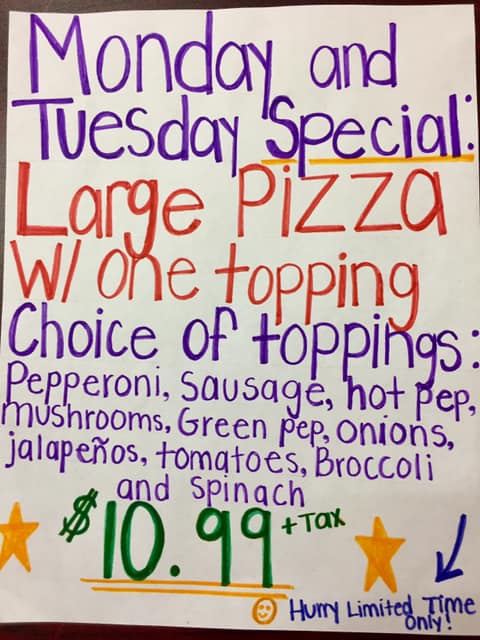 Monday and
Tuesday Special:
Large Pizza
W/ one topping
Choice of toppings:
Pepperoni, Sausage, hot pep,
mushrooms, Green pep, onions,
jalapeños, tomatoes, Broccoli
and spinach
$10.99 + Tax
Hurry Limited Time
only!